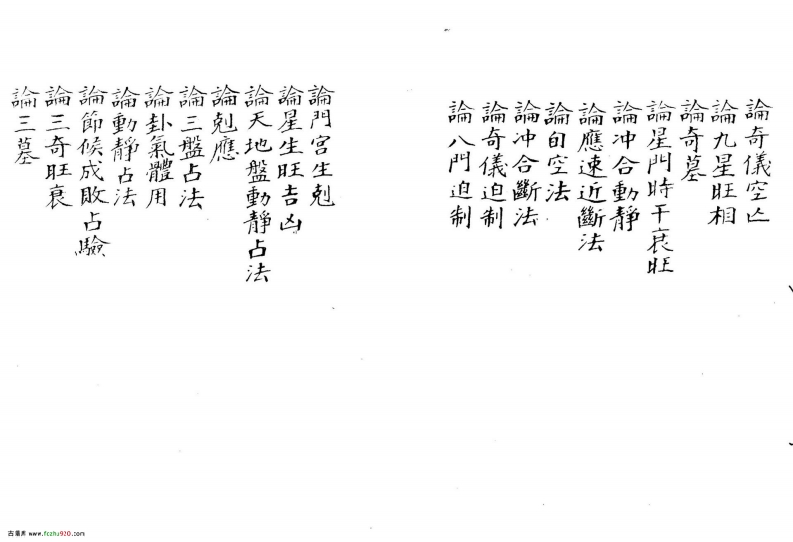 論奇儀空亾
論九星旺相
論奇墓
論星門時干衰旺
論冲合動靜
論應速近斷法
論旬空法
論冲合斷法
論奇儀迫制
論八門迫制
論門宮生剋
論星生旺吉凶
論天地盤動靜占法
論剋應
論三盤占法
論卦氣體用
論動靜占法
論節候成敗占驗
論三奇旺衰
論三墓
www.fczhu920.com